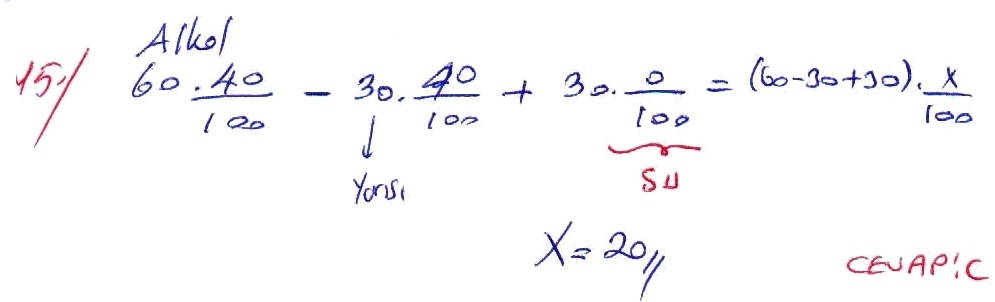 15/ Alkol
60 . 40/100 - 30 . 40/100 + 30 . 0/100 = (60-30+30) . x/100
Yarısı
SU
X = 20//
CEVAP:C